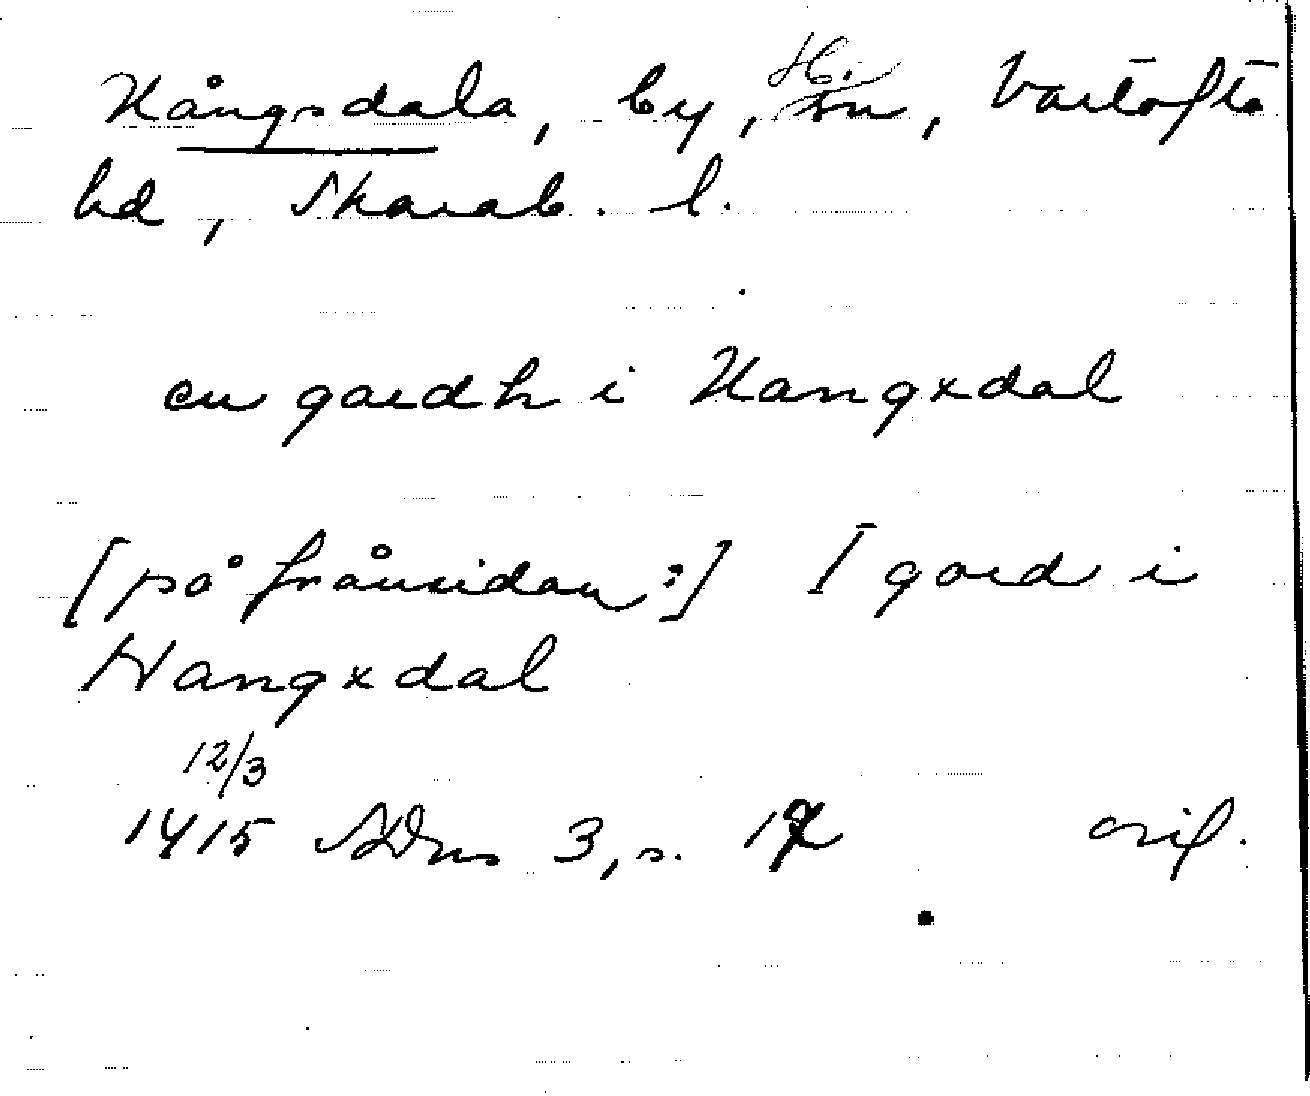 Hångsdala, by, H. sn, Vartofta
hd, Skarab. l.
en gardh i Hangxdal
[på frånsidan:] I gard i
Hangxdal
12/3
1415 SDns 3, s. 12 orig.